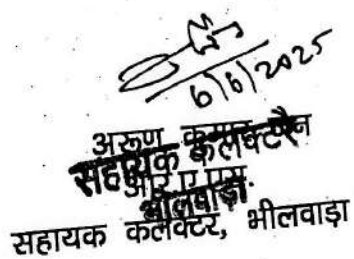 6/6/2025
अरूण कुमार जैन
सहायक कलेक्टर
आर.ए.एस.
भीलवाड़ा
सहायक कलेक्टर, भीलवाड़ा